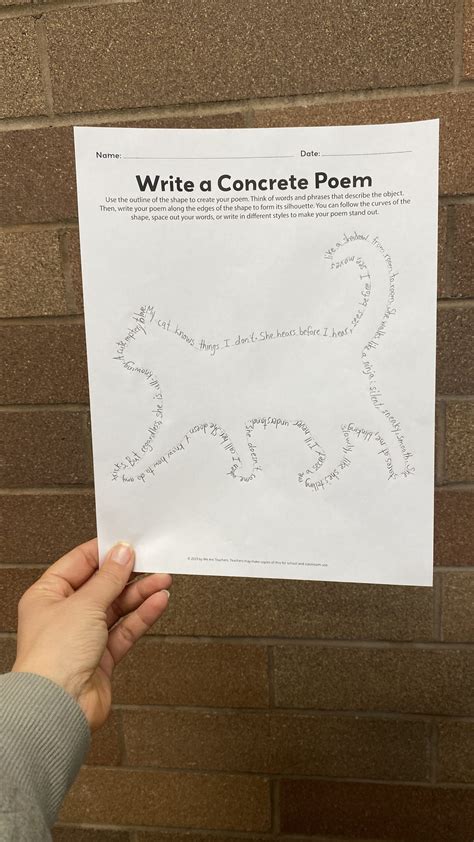 Name:
Date:
Write a Concrete Poem
Use the outline of the shape to create your poem. Think of words and phrases that describe the object.
Then, write your poem along the edges of the shape to form its silhouette. You can follow the curves of the
shape, space out your words, or write in different styles to make your poem stand out.
My cat knows things I don't. She hears before I hear, sees before I see
like a shadow from room to room. She walks like a ninja: silent, sneaky, smooth. She
slowly, like she's telling
I'll never understand.
She doesn't
she doesn't know how to do any
tricks. But regardless she is
all-knowing
© 2023 by We Are Teachers. Teachers may make copies of this for school and classroom use.